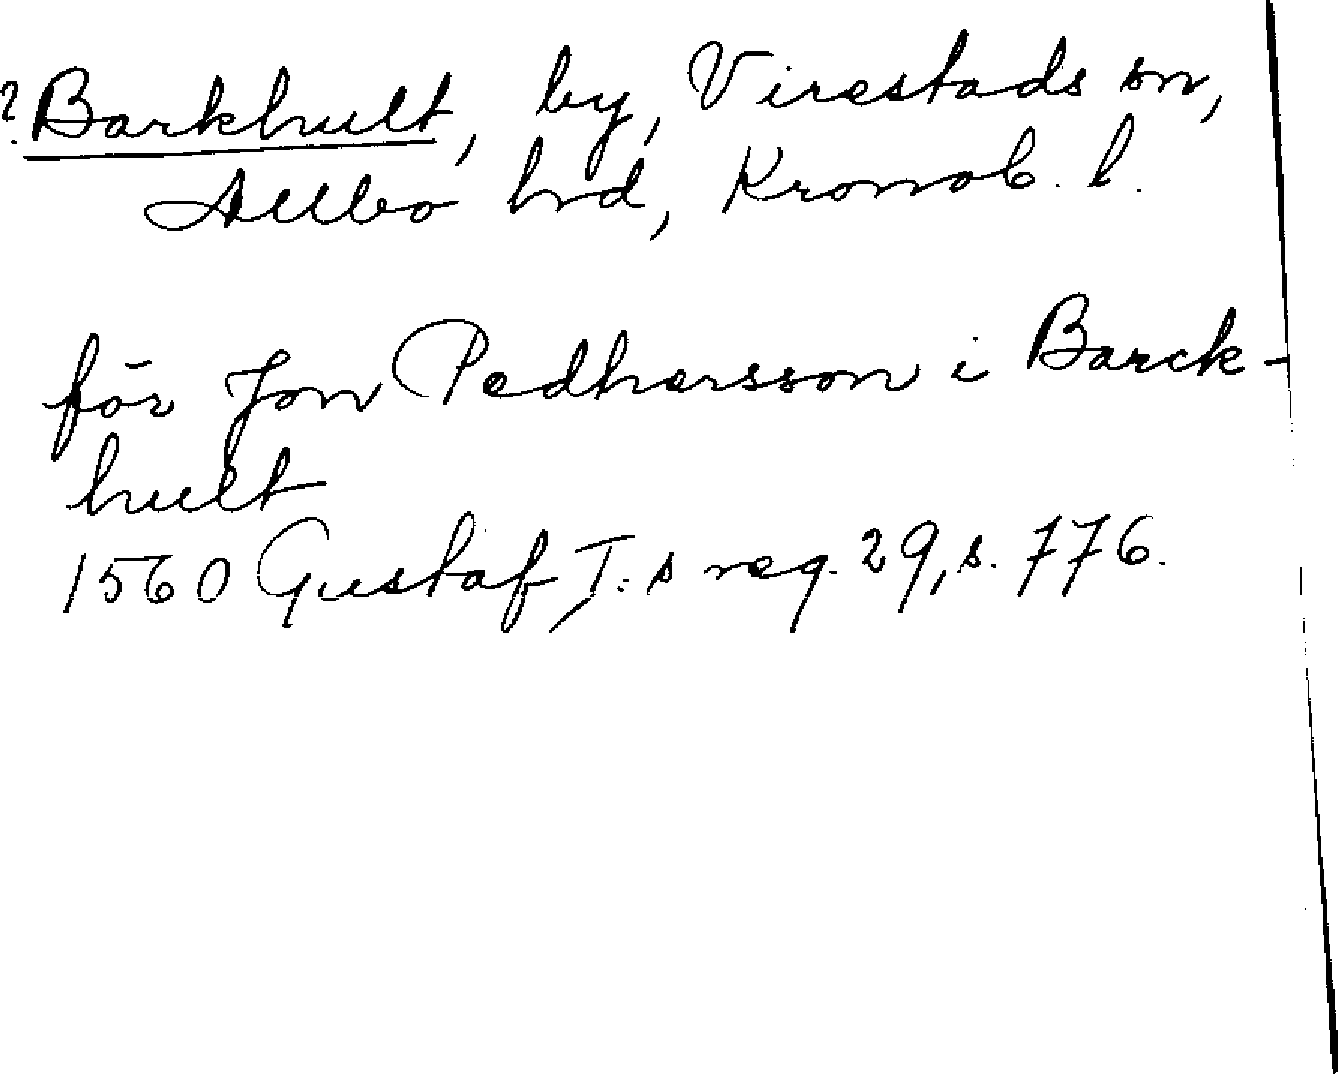 ? Barkhult, by, Virestads sn,
Allbo hd, Kronob. l.
för Jon Pedhersson i Barck-
hult
1560 Gustaf I:s reg. 29, s. 776.